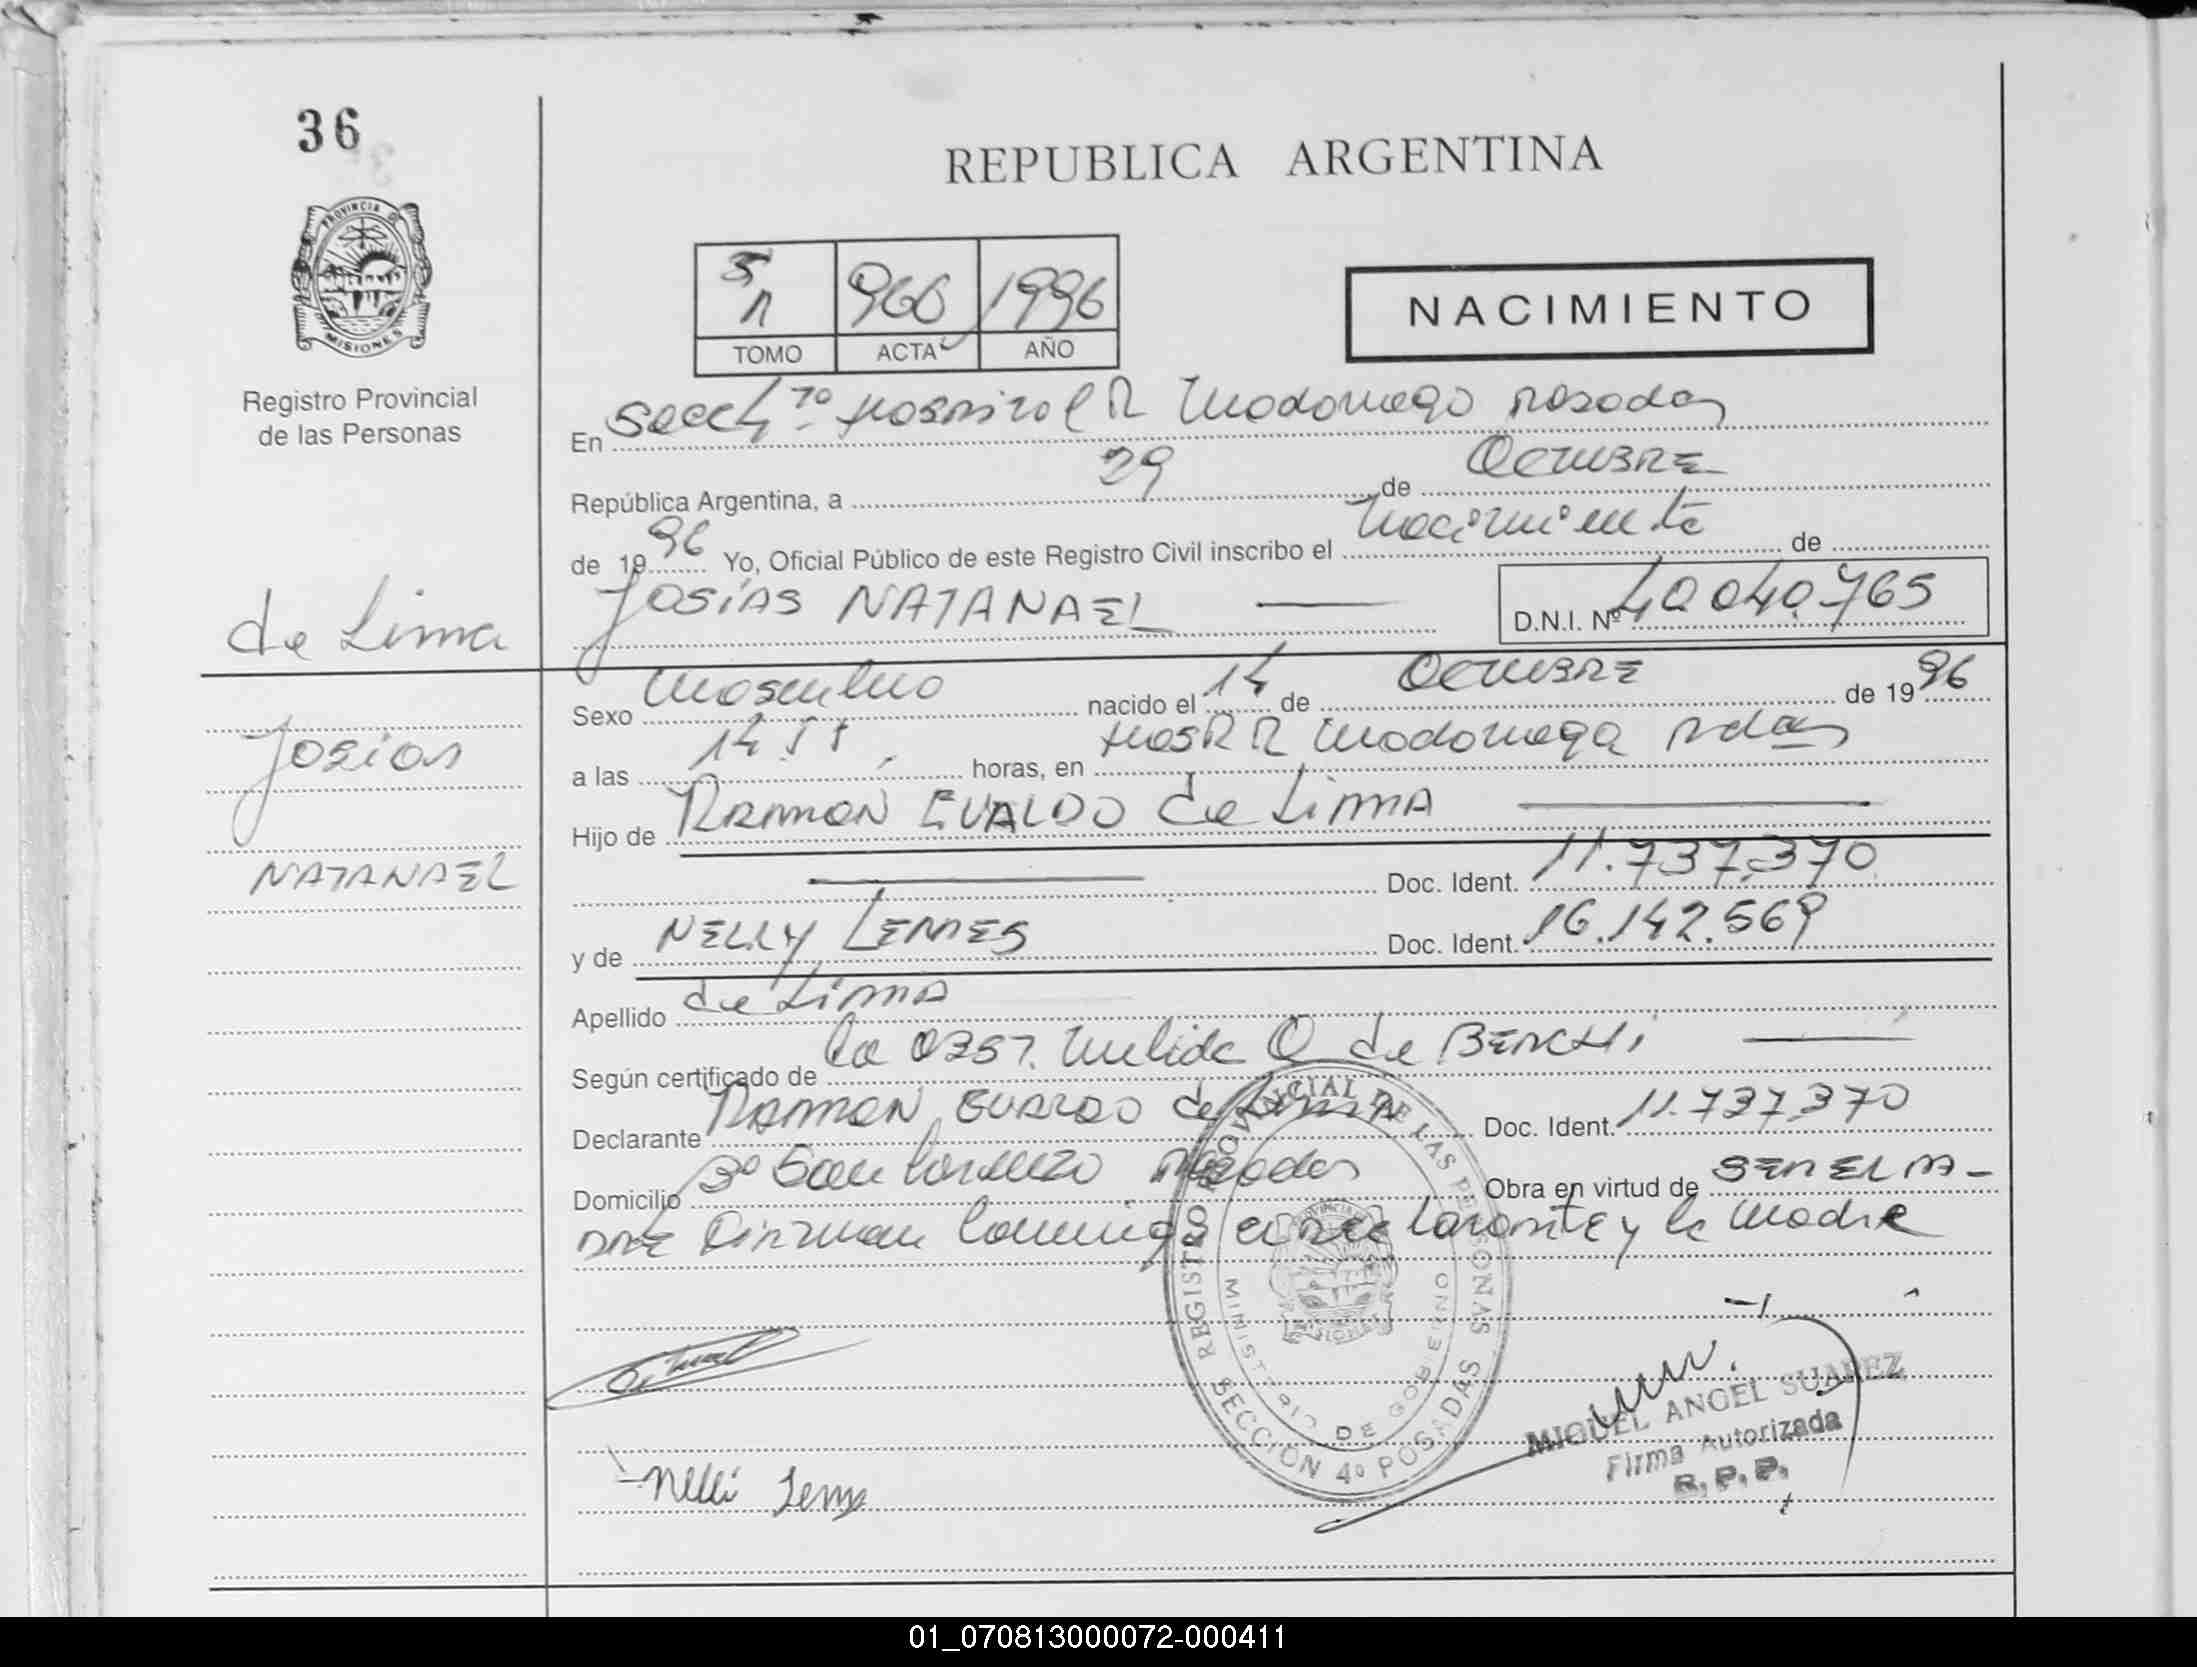 36
PROVINCIA DE
MISIONES
Registro Provincial
de las Personas
REPUBLICA ARGENTINA
966 1996
TOMO ACTA AÑO
NACIMIENTO
En Secc 4ta Hospital R Madariaga Posadas
República Argentina, a 29 de Octubre
de 1996 Yo, Oficial Público de este Registro Civil inscribo el Nacimiento de
Josías NATANAEL D.N.I. Nº 40.040.765
de Lima
Josias
NATANAEL
Sexo Masculino nacido el 14 de Octubre de 1996
a las horas, en Hosp R Madariaga Pdas
Hijo de RAMON EVALDO de LimA
Doc. Ident. 11.737.370
y de NELLY LEMES Doc. Ident. 16.142.569
Apellido de LimA
Según certificado de la Obst. Nelida O de
Declarante RAMON EVALDO de LimA Doc. Ident. 11.737.370
Domicilio Bº San Lorenzo Posadas Obra en virtud de SER EL PA-
DRE Firman Conmigo el Declarante y la Madre
REGISTRO PROVINCIAL DE LAS PERSONAS
MINISTERIO DE GOBIERNO
SECCION 4º POSADAS
MIGUEL ANGEL SUAREZ
Firma Autorizada
R. P. P.
Nelli Lemes
01_070813000072-000411